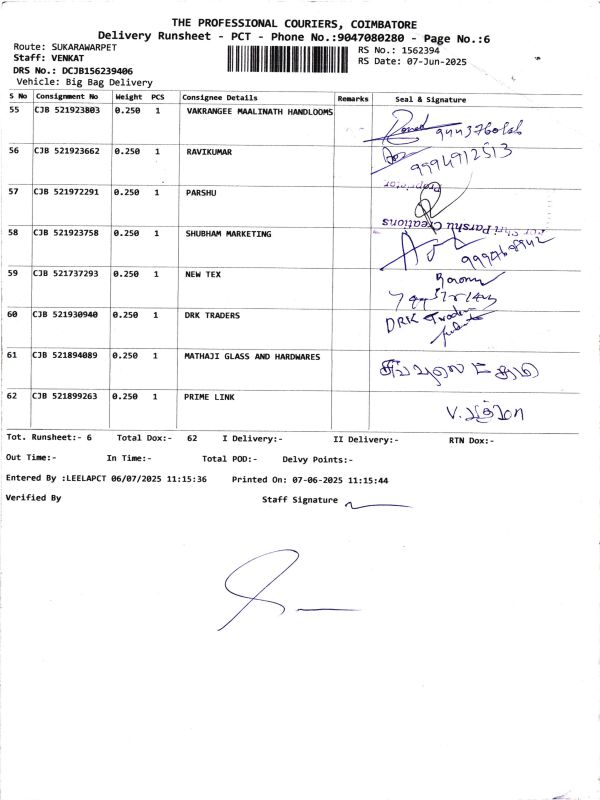 THE PROFESSIONAL COURIERS, COIMBATORE
Delivery Runsheet - PCT - Phone No.:9047080280 - Page No.:6
Route: SUKARAWARPET
RS No.: 1562394
Staff: VENKAT
RS Date: 07-Jun-2025
DRS No.: DCJB156239406
Vehicle: Big Bag Delivery
S No Consignment No Weight PCS Consignee Details Remarks Seal & Signature
55 CJB 521923803 0.250 1 VAKRANGEE MAALINATH HANDLOOMS
56 CJB 521923662 0.250 1 RAVIKUMAR 9994912513
57 CJB 521972291 0.250 1 PARSHU
Proprietor
For Shri Parshu Creations
58 CJB 521923758 0.250 1 SHUBHAM MARKETING
59 CJB 521737293 0.250 1 NEW TEX
60 CJB 521930940 0.250 1 DRK TRADERS DRK
61 CJB 521894089 0.250 1 MATHAJI GLASS AND HARDWARES
62 CJB 521899263 0.250 1 PRIME LINK V.
Tot. Runsheet:- 6 Total Dox:- 62 I Delivery:- II Delivery:- RTN Dox:-
Out Time:- In Time:- Total POD:- Delvy Points:-
Entered By :LEELAPCT 06/07/2025 11:15:36 Printed On: 07-06-2025 11:15:44
Verified By Staff Signature